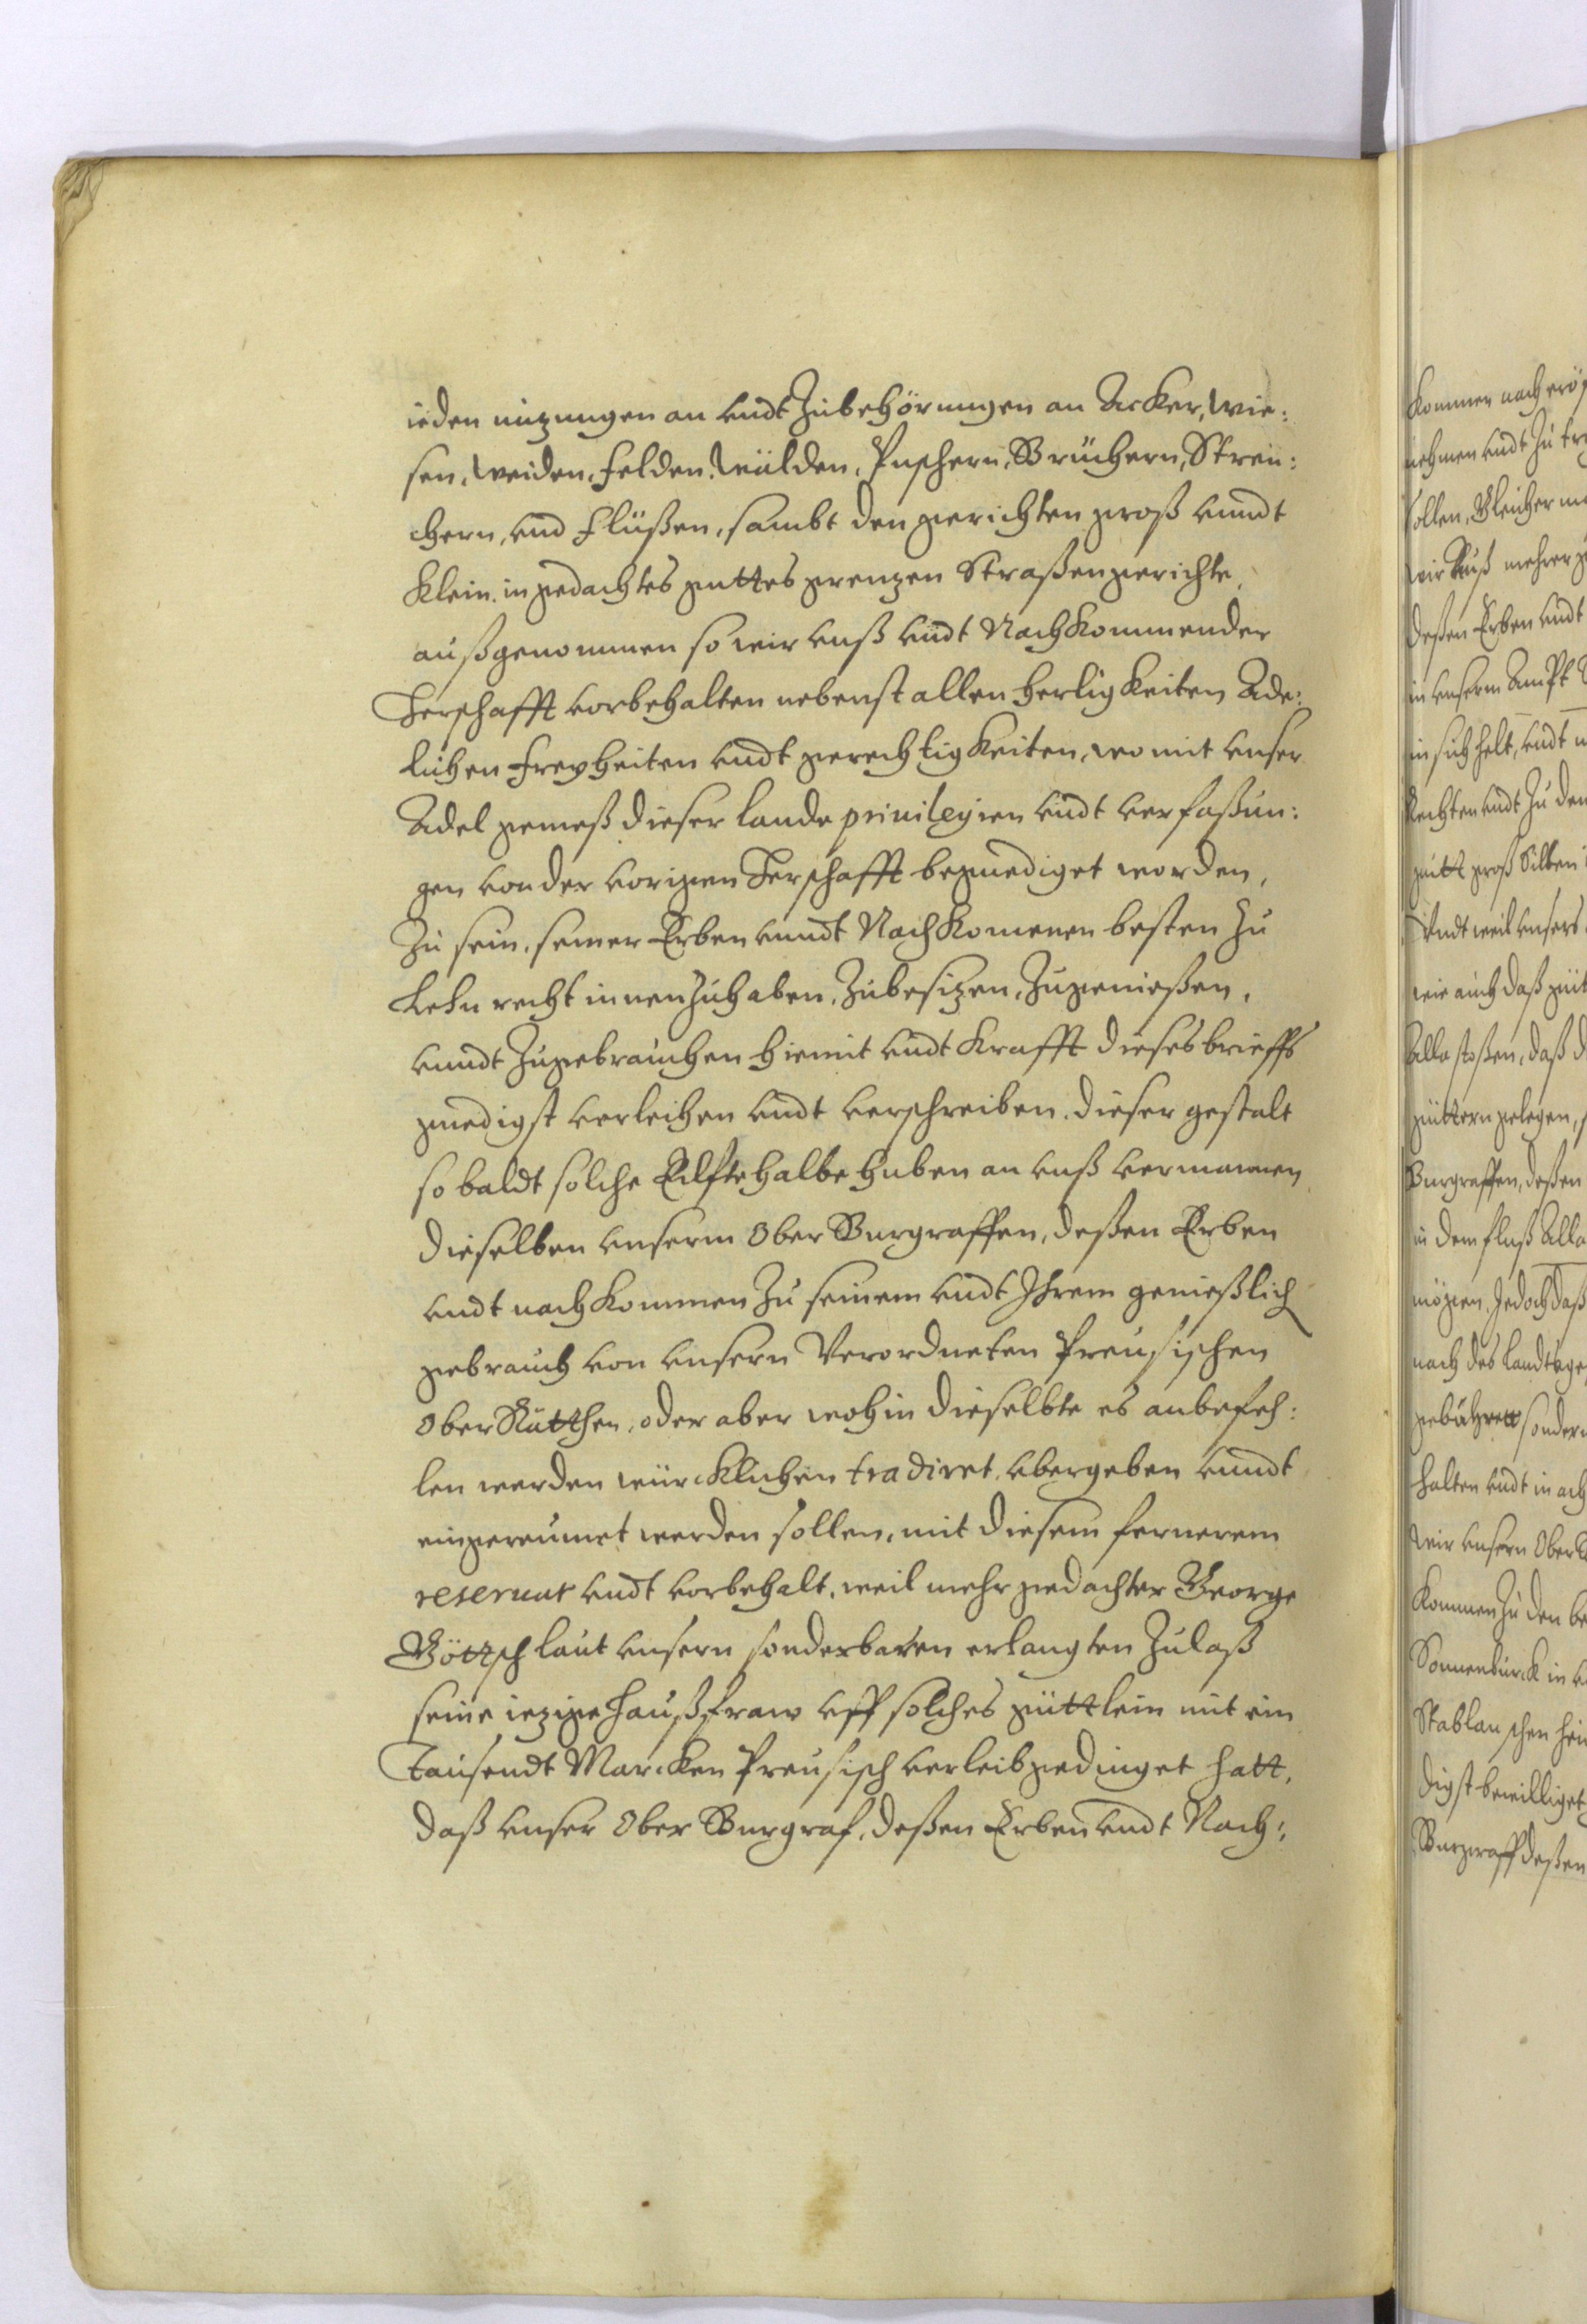 ieden nuzungen an undt Zubehörungen an Acker, wie:
sen, weiden, felden, wälden, Püschern, Brüchern, Streü:
chern, und flüßen, sambt den gerichten groß unndt
Klein in gedachtes guttes grenzen Straßengerichte
außgenommen so wir unß undt Nachkommender
Herschafft vorbehalten nebenst allen herligkeiten Ade:
lichen freyheiten undt gerechtigkeiten, womit unser
Adel gemeß dieser Lande privilegien undt verfaßun:
gen von der vorigen Herschafft begnediget worden,
Zu sein, seiner Erben unndt Nachkomenen besten Zu
Lehn recht innen Zuhaben, Zubesizen, Zugenießen,
unndt Zugebrauchen hiemit undt Krafft dieses brieffs
gnedigst verleihen undt verschreiben. dieser gestalt
so baldt solche Eilftehalbe huben an unß vermannen
dieselben unserm Ober Burgraffen, deßen Erben
undt nachkommen Zu seinem undt Ihrem genießlich
gebrauch von unsern Verordneten Preusischen
Ober Rätthen, oder aber wohin dieselbte es anbefeh:
len werden würcklichen tradiret, ubergeben unndt
eingereumet werden sollen, mit diesem fernerem
reservat undt vorbehalt, weil mehr gedachter George
Göttzsch laut unsern sonderbaren erlangten Zulaß
seine iezige haußfraw uff solches güttlein mit ein
Tausendt Marcken Preusisch verleibgedinget hatt,
daß unser Ober Burgraf, deßen Erben undt Nach:
Kommen nach
nehmen undt Zu
sollen, Gleicher
wir Auß mehrer
deßen Erben undt
in unserm Ampt
in sich helt, undt
Rechten undt Zu den
gutt groß Silben
Undt weil unsers
wie auch daß
Alla stoßen, daß
güttern gelegen,
Burgraffen, deßen
in dem fluß Alla
mögen. Jedoch daß
nach des Landts
gebühret sondern
halten undt in
wir unsern Ober
Kommen Zu den
Sonnenburck in
Stablauschen
digst bewilliget
Burgraff deßen